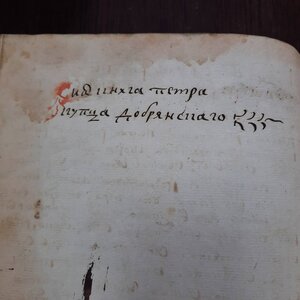 Сия книга петра
купца добрянскаго